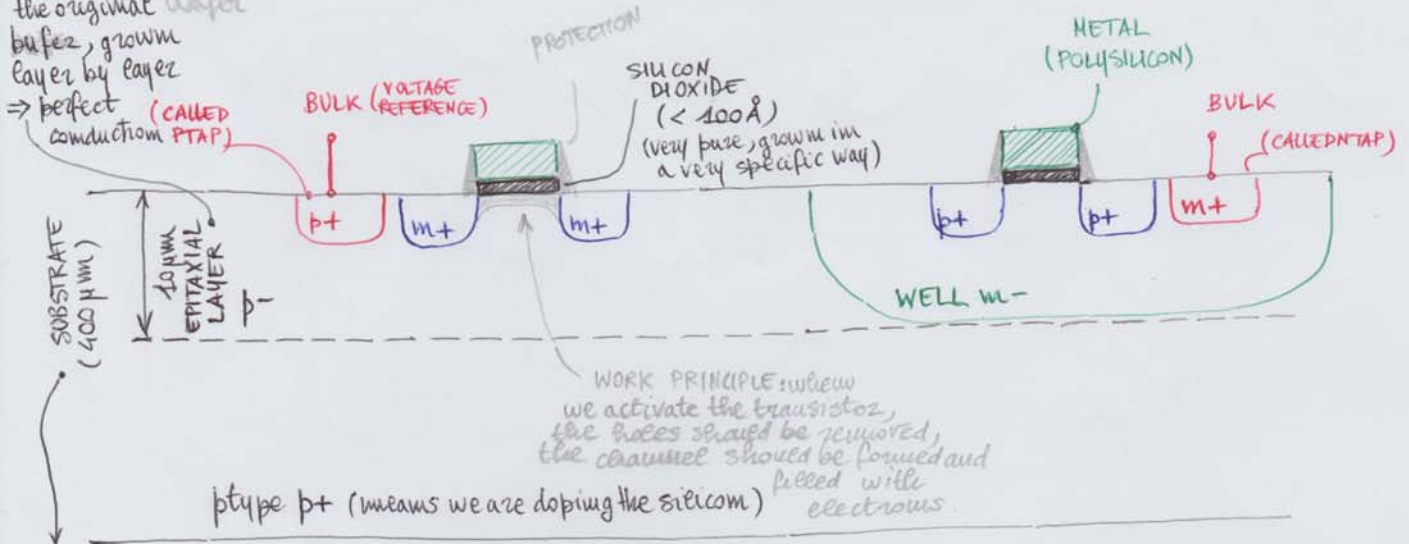 the original wafer
bufer, grown
layer by layer
=> perfect
conduction
(CALLED
PTAP)
BULK (VOLTAGE
REFERENCE)
PROTECTION
SILICON
DIOXIDE
(< 100Å)
(very pure, grown in
a very specific way)
METAL
(POLYSILICON)
BULK
(CALLED NTAP)
p+
n+
n+
p+
p+
n+
SUBSTRATE
(400 µm)
10 µm
EPITAXIAL
LAYER
p-
WELL n-
WORK PRINCIPLE: when
we activate the transistor,
the holes should be removed,
the channel should be formed and
filled with
electrons.
ptype p+ (means we are doping the silicon)